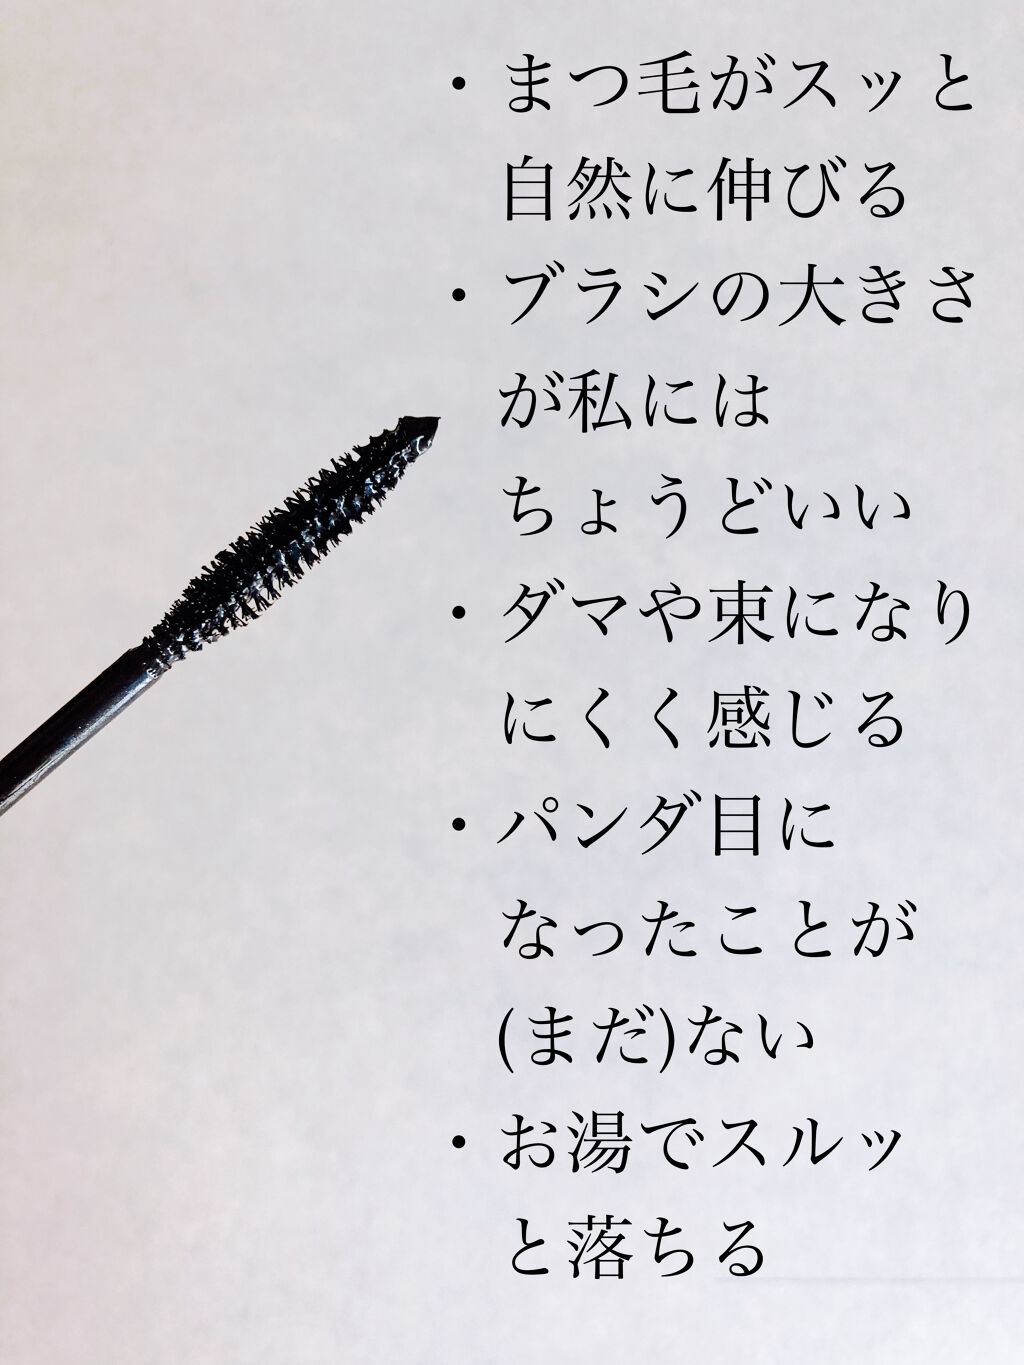 ・まつ毛がスッと
自然に伸びる
・ブラシの大きさ
が私には
ちょうどいい
・ダマや束になり
にくく感じる
・パンダ目に
なったことが
(まだ)ない
・お湯でスルッ
と落ちる